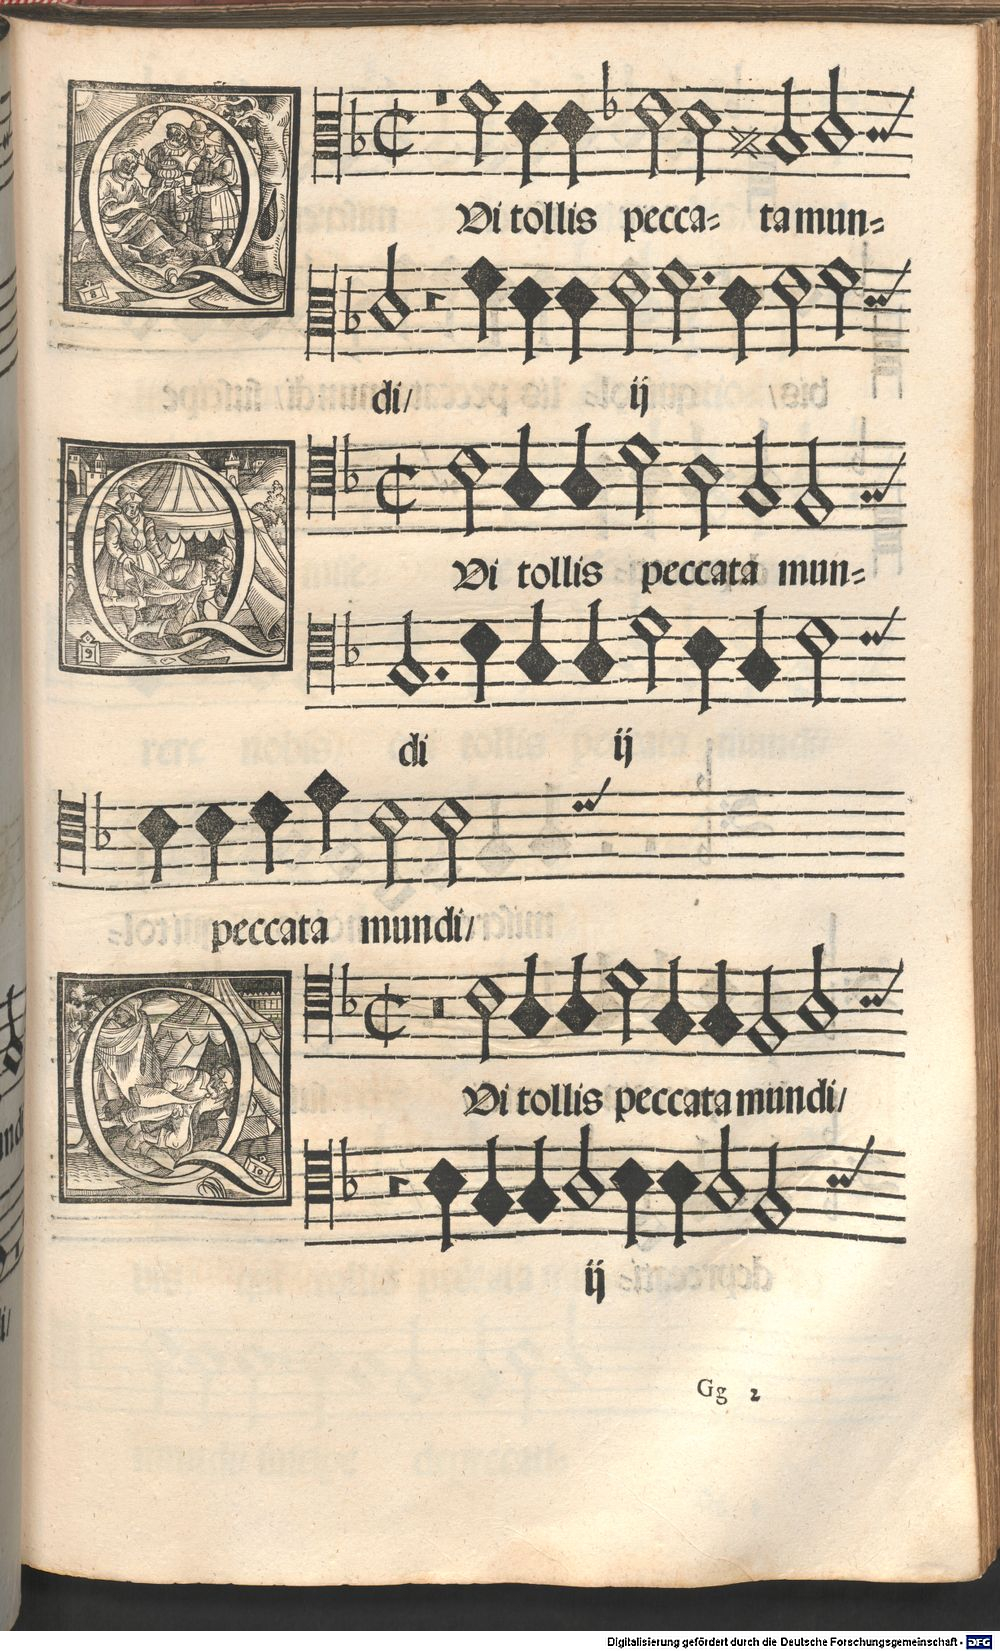 QVi tollis pecca= ta mun=
di/ ij
QVi tollis peccata mun=
di ij
peccata mundi/
QVi tollis peccata mundi/
ij
Gg 2
Digitalisierung gefördert durch die Deutsche Forschungsgemeinschaft - DFG